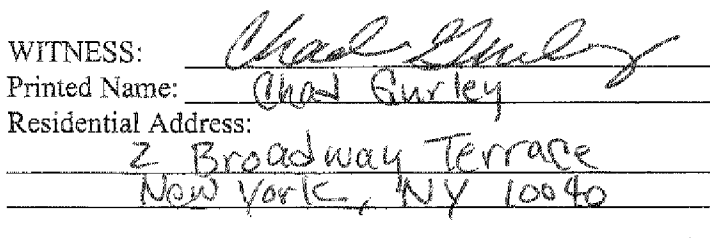 WITNESS: Chad Gurley
Printed Name: Chad Gurley
Residential Address:
2 Broadway Terrace
New York, NY 10040